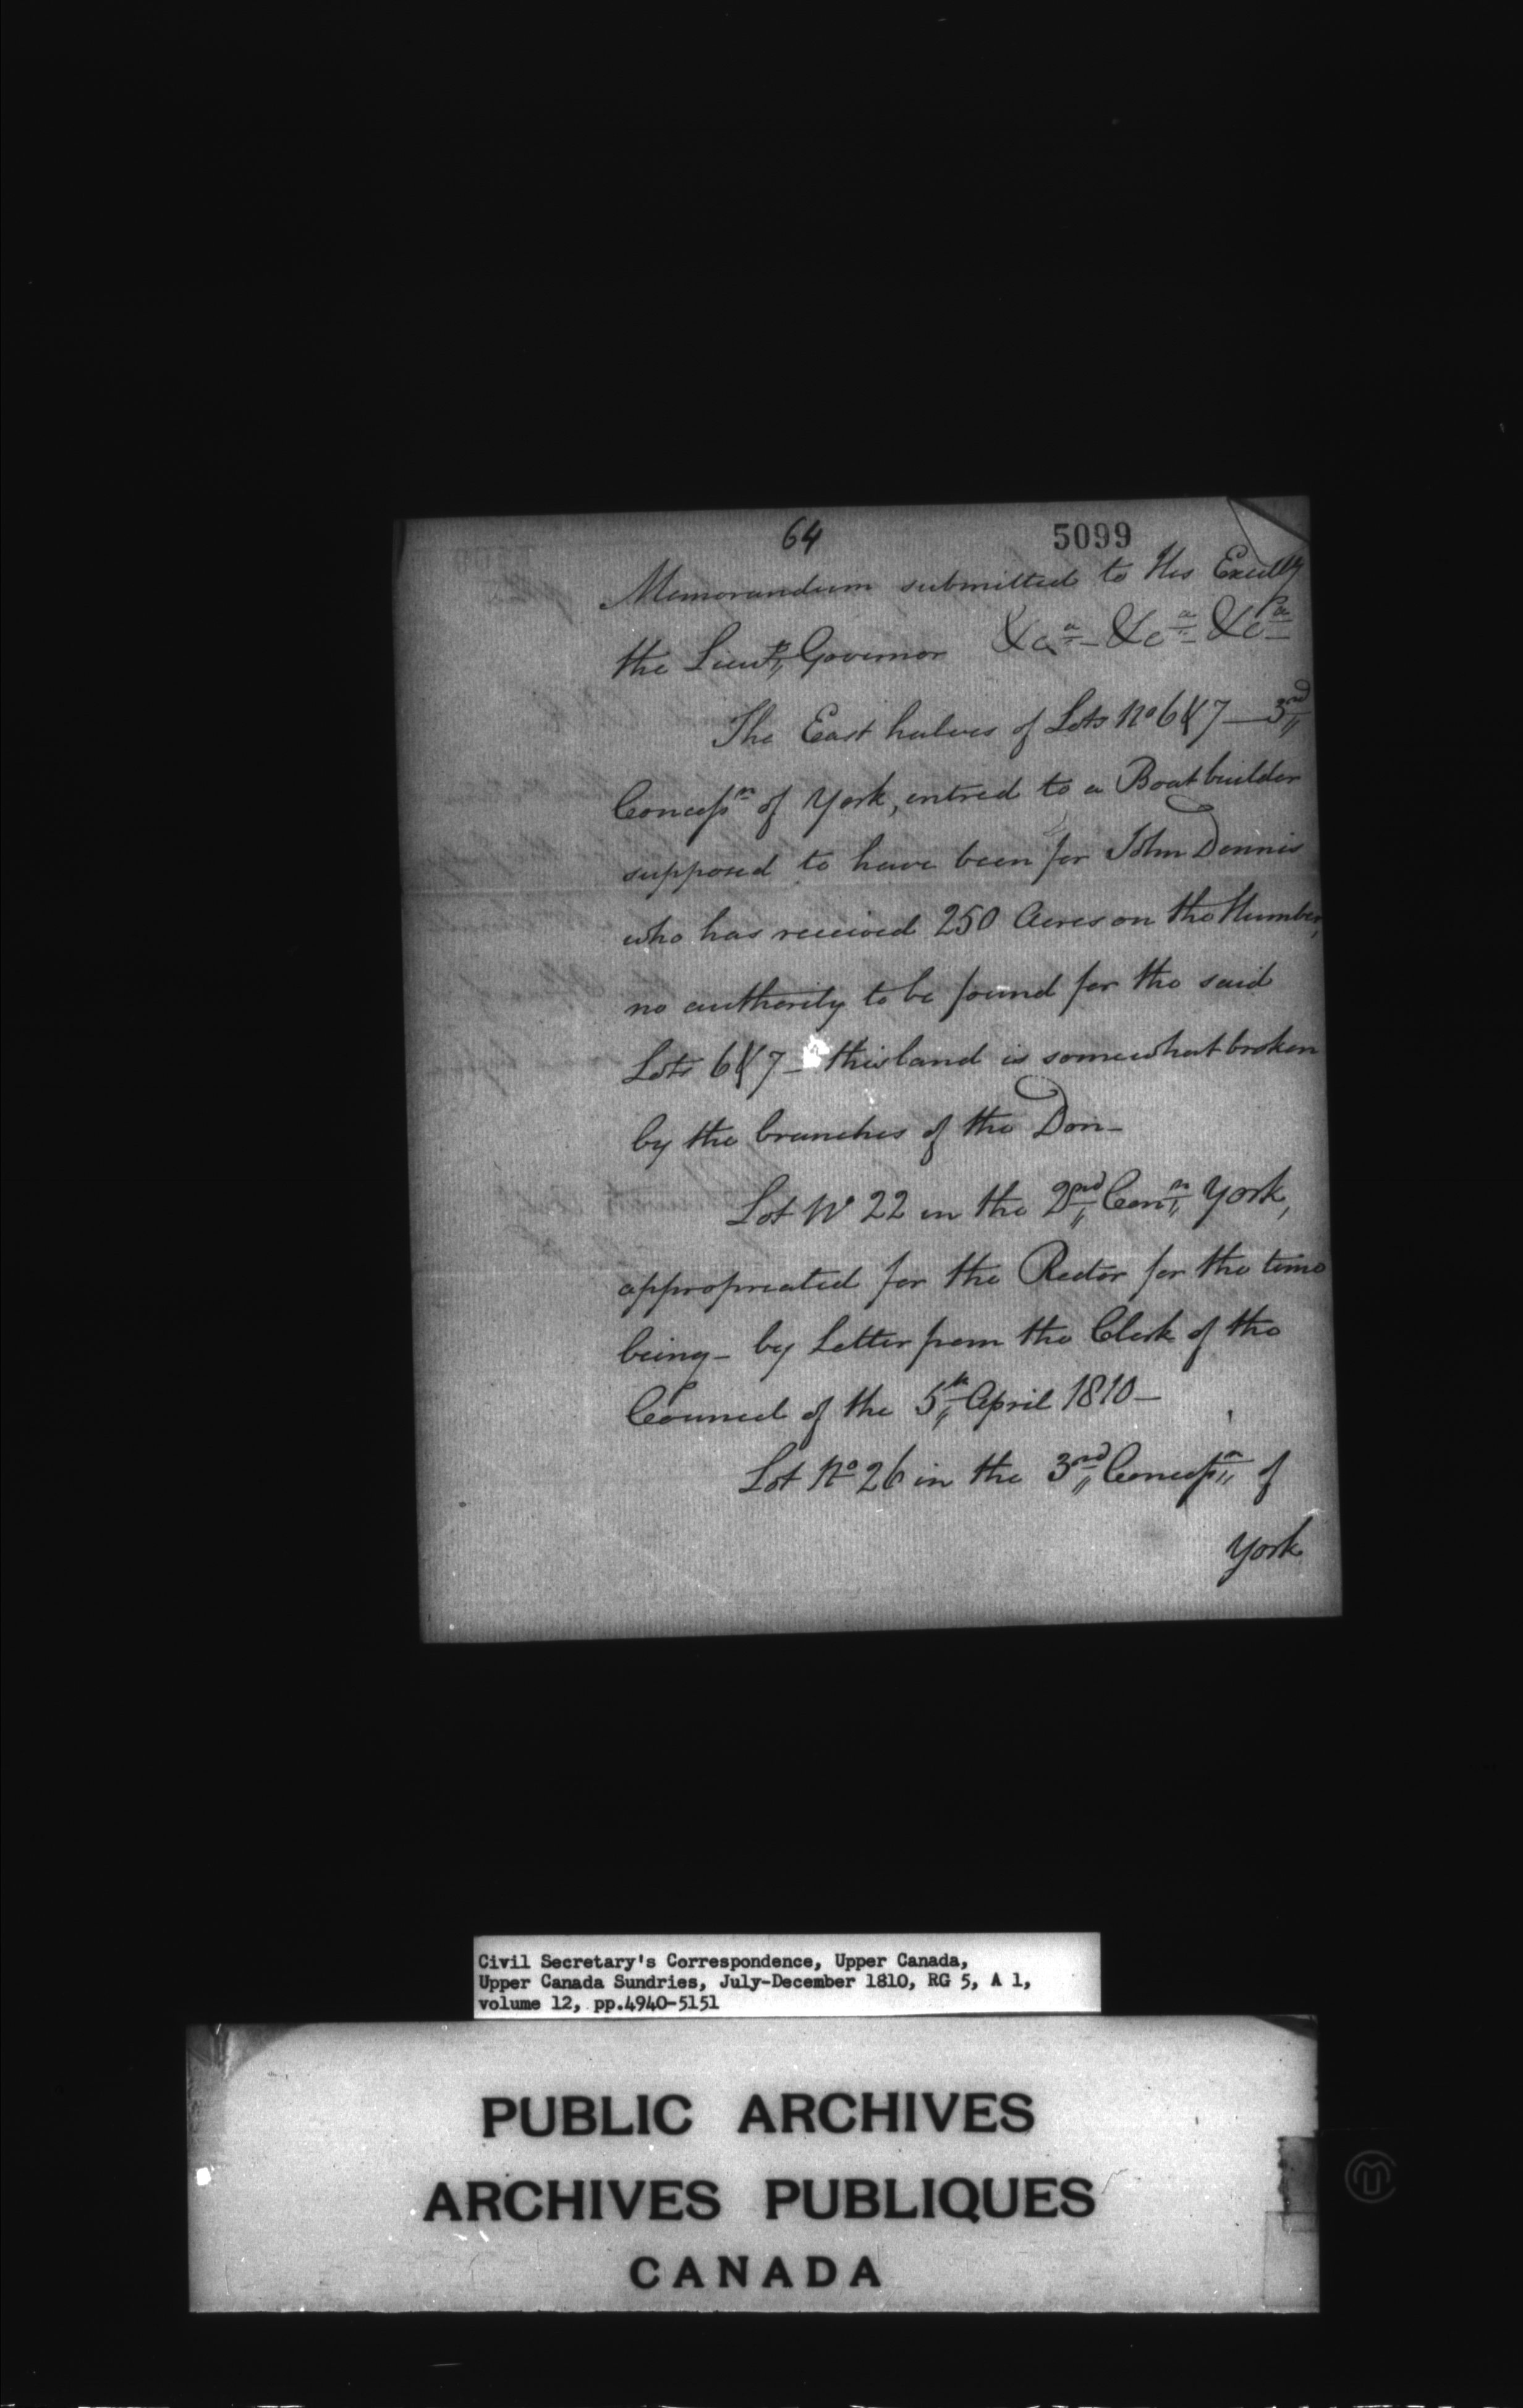 64
5099
Memorandum submitted to His Excelly
the Lieut. Governor &ca - &ca &ca
The East halves of Lots No 6 & 7 — 3rd
Concessn of York, entred to a Boatbuilder
supposed to have been for John Dennis
who has received 250 Acres on the Humber,
no authority to be found for the said
Lots 6 & 7 - this land is somewhat broken
by the branches of the Don -
Lot No 22 in the 2nd Conn York,
appropriated for the Rector for the time
being - by Letter from the Clerk of the
Council of the 5th April 1810 -
Lot No 26 in the 3rd Concessn of
York
Civil Secretary's Correspondence, Upper Canada,
Upper Canada Sundries, July-December 1810, RG 5, A 1,
volume 12, pp.4940-5151
PUBLIC ARCHIVES
ARCHIVES PUBLIQUES
CANADA